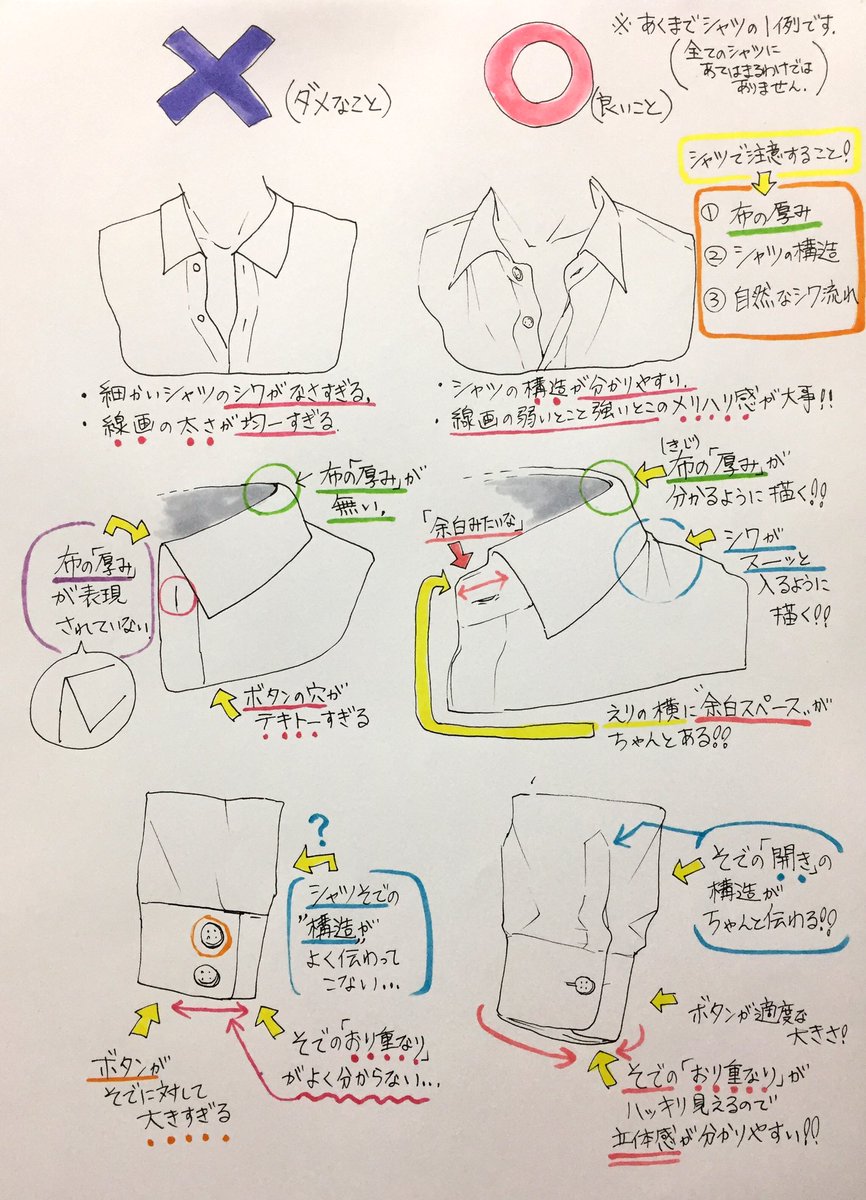 ※ あくまでシャツの1例です.
(全てのシャツに
あてはまるわけでは
ありません.)
(ダメなこと)
(良いこと)
シャツで注意すること!
① 布の厚み
② シャツの構造
③ 自然なシワ流れ
・細かいシャツのシワがなさすぎる.
・線画の太さが均一すぎる.
・シャツの構造が分かりやすい.
・線画の弱いとこと強いとこのメリハリ感が大事!!
布の「厚み」が
無い.
布の「厚み」
が表現
されていない
ボタンの穴が
テキトーすぎる
(きじ)
布の「厚み」が
分かるように描く!!
「余白みたいな」
シワが
スーッと
入るように
描く!!
えりの横に"余白スペース"が
ちゃんとある!!
?
シャツそでの
"構造"が
よく伝わって
こない...
ボタンが
そでに対して
大きすぎる
そでの「おり重なり」
がよく分からない...
そでの「開き」の
構造が
ちゃんと伝わる!!
ボタンが適度な
大きさ!
そでの「おり重なり」が
ハッキリ見えるので
立体感が分かりやすい!!